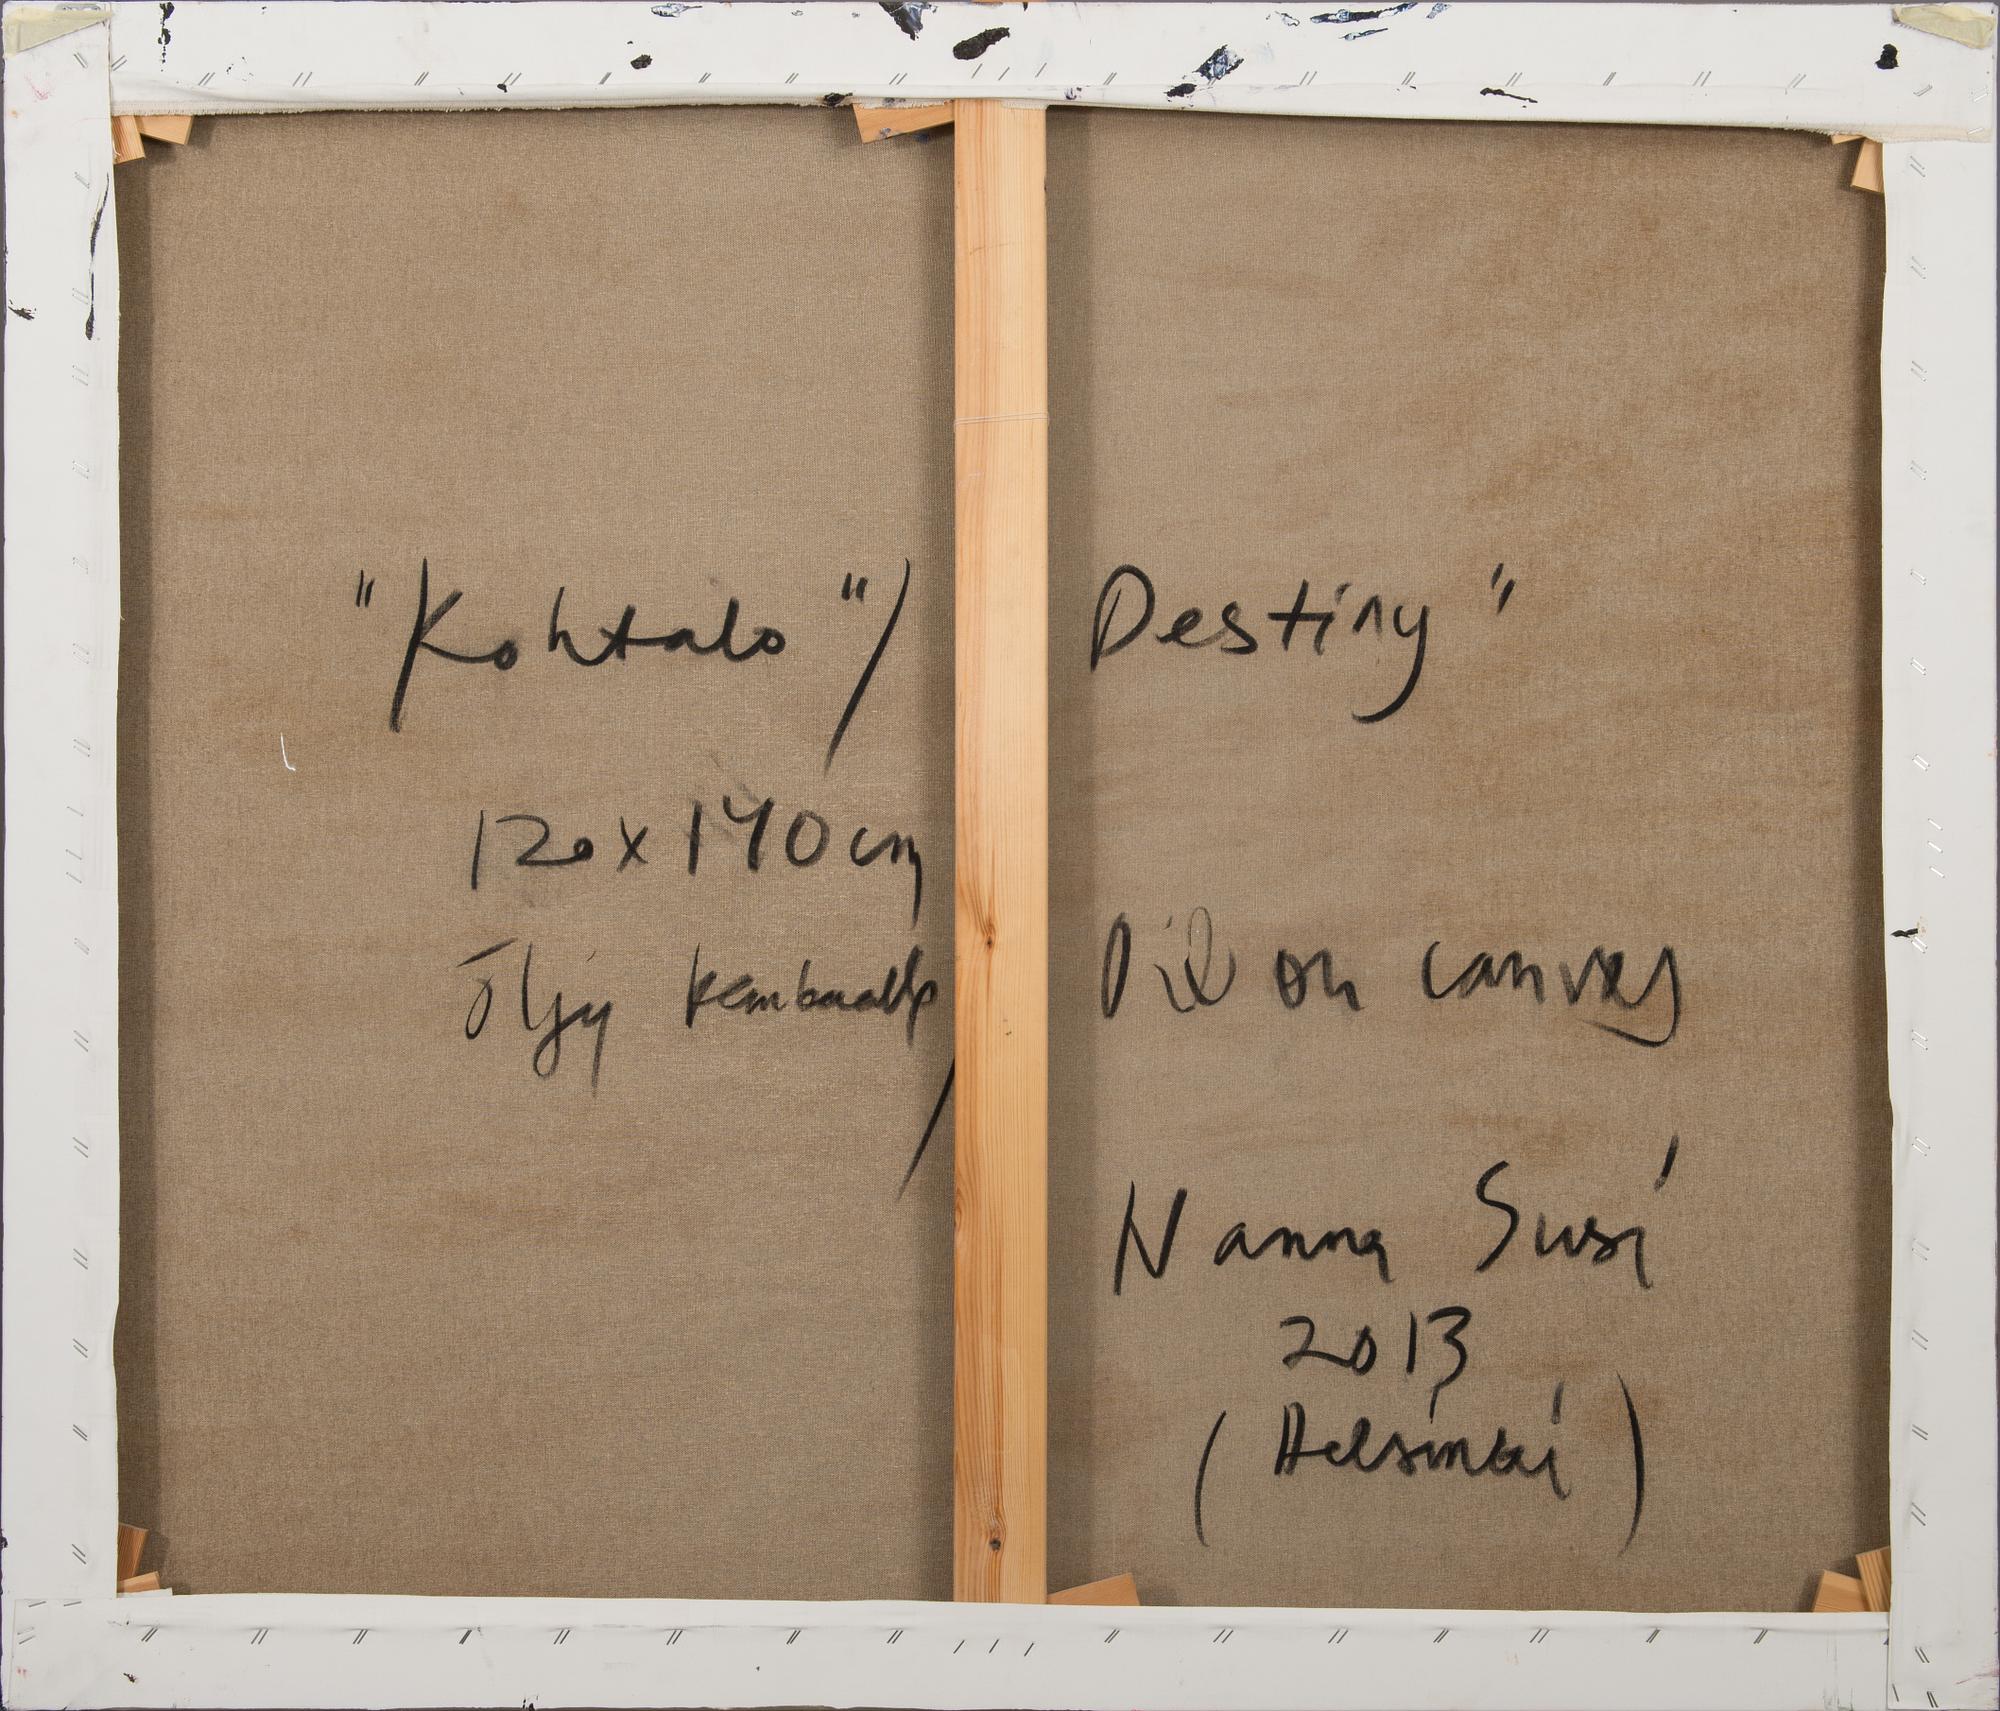 "Kohtalo"/ Destiny"
120x140cm
öljy kankaalle / Oil on canvas
Nanna Susi
2013
(Helsinki)